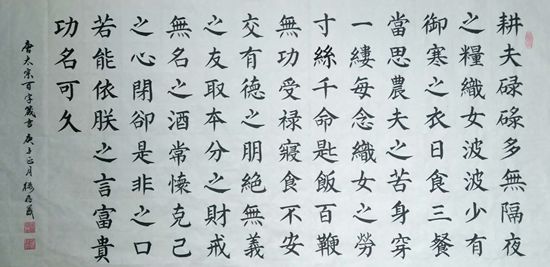 耕夫碌碌多無隔夜
之糧織女波波少有
御寒之衣日食三餐
當思農夫之苦身穿
一縷每念織女之勞
寸絲千命匙飯百鞭
無功受禄寢食不安
交有德之朋絕無義
之友取本分之財戒
無名之酒常懷克己
之心閉卻是非之口
若能依朕之言富貴
功名可久
唐太宗百字箴言庚子正月